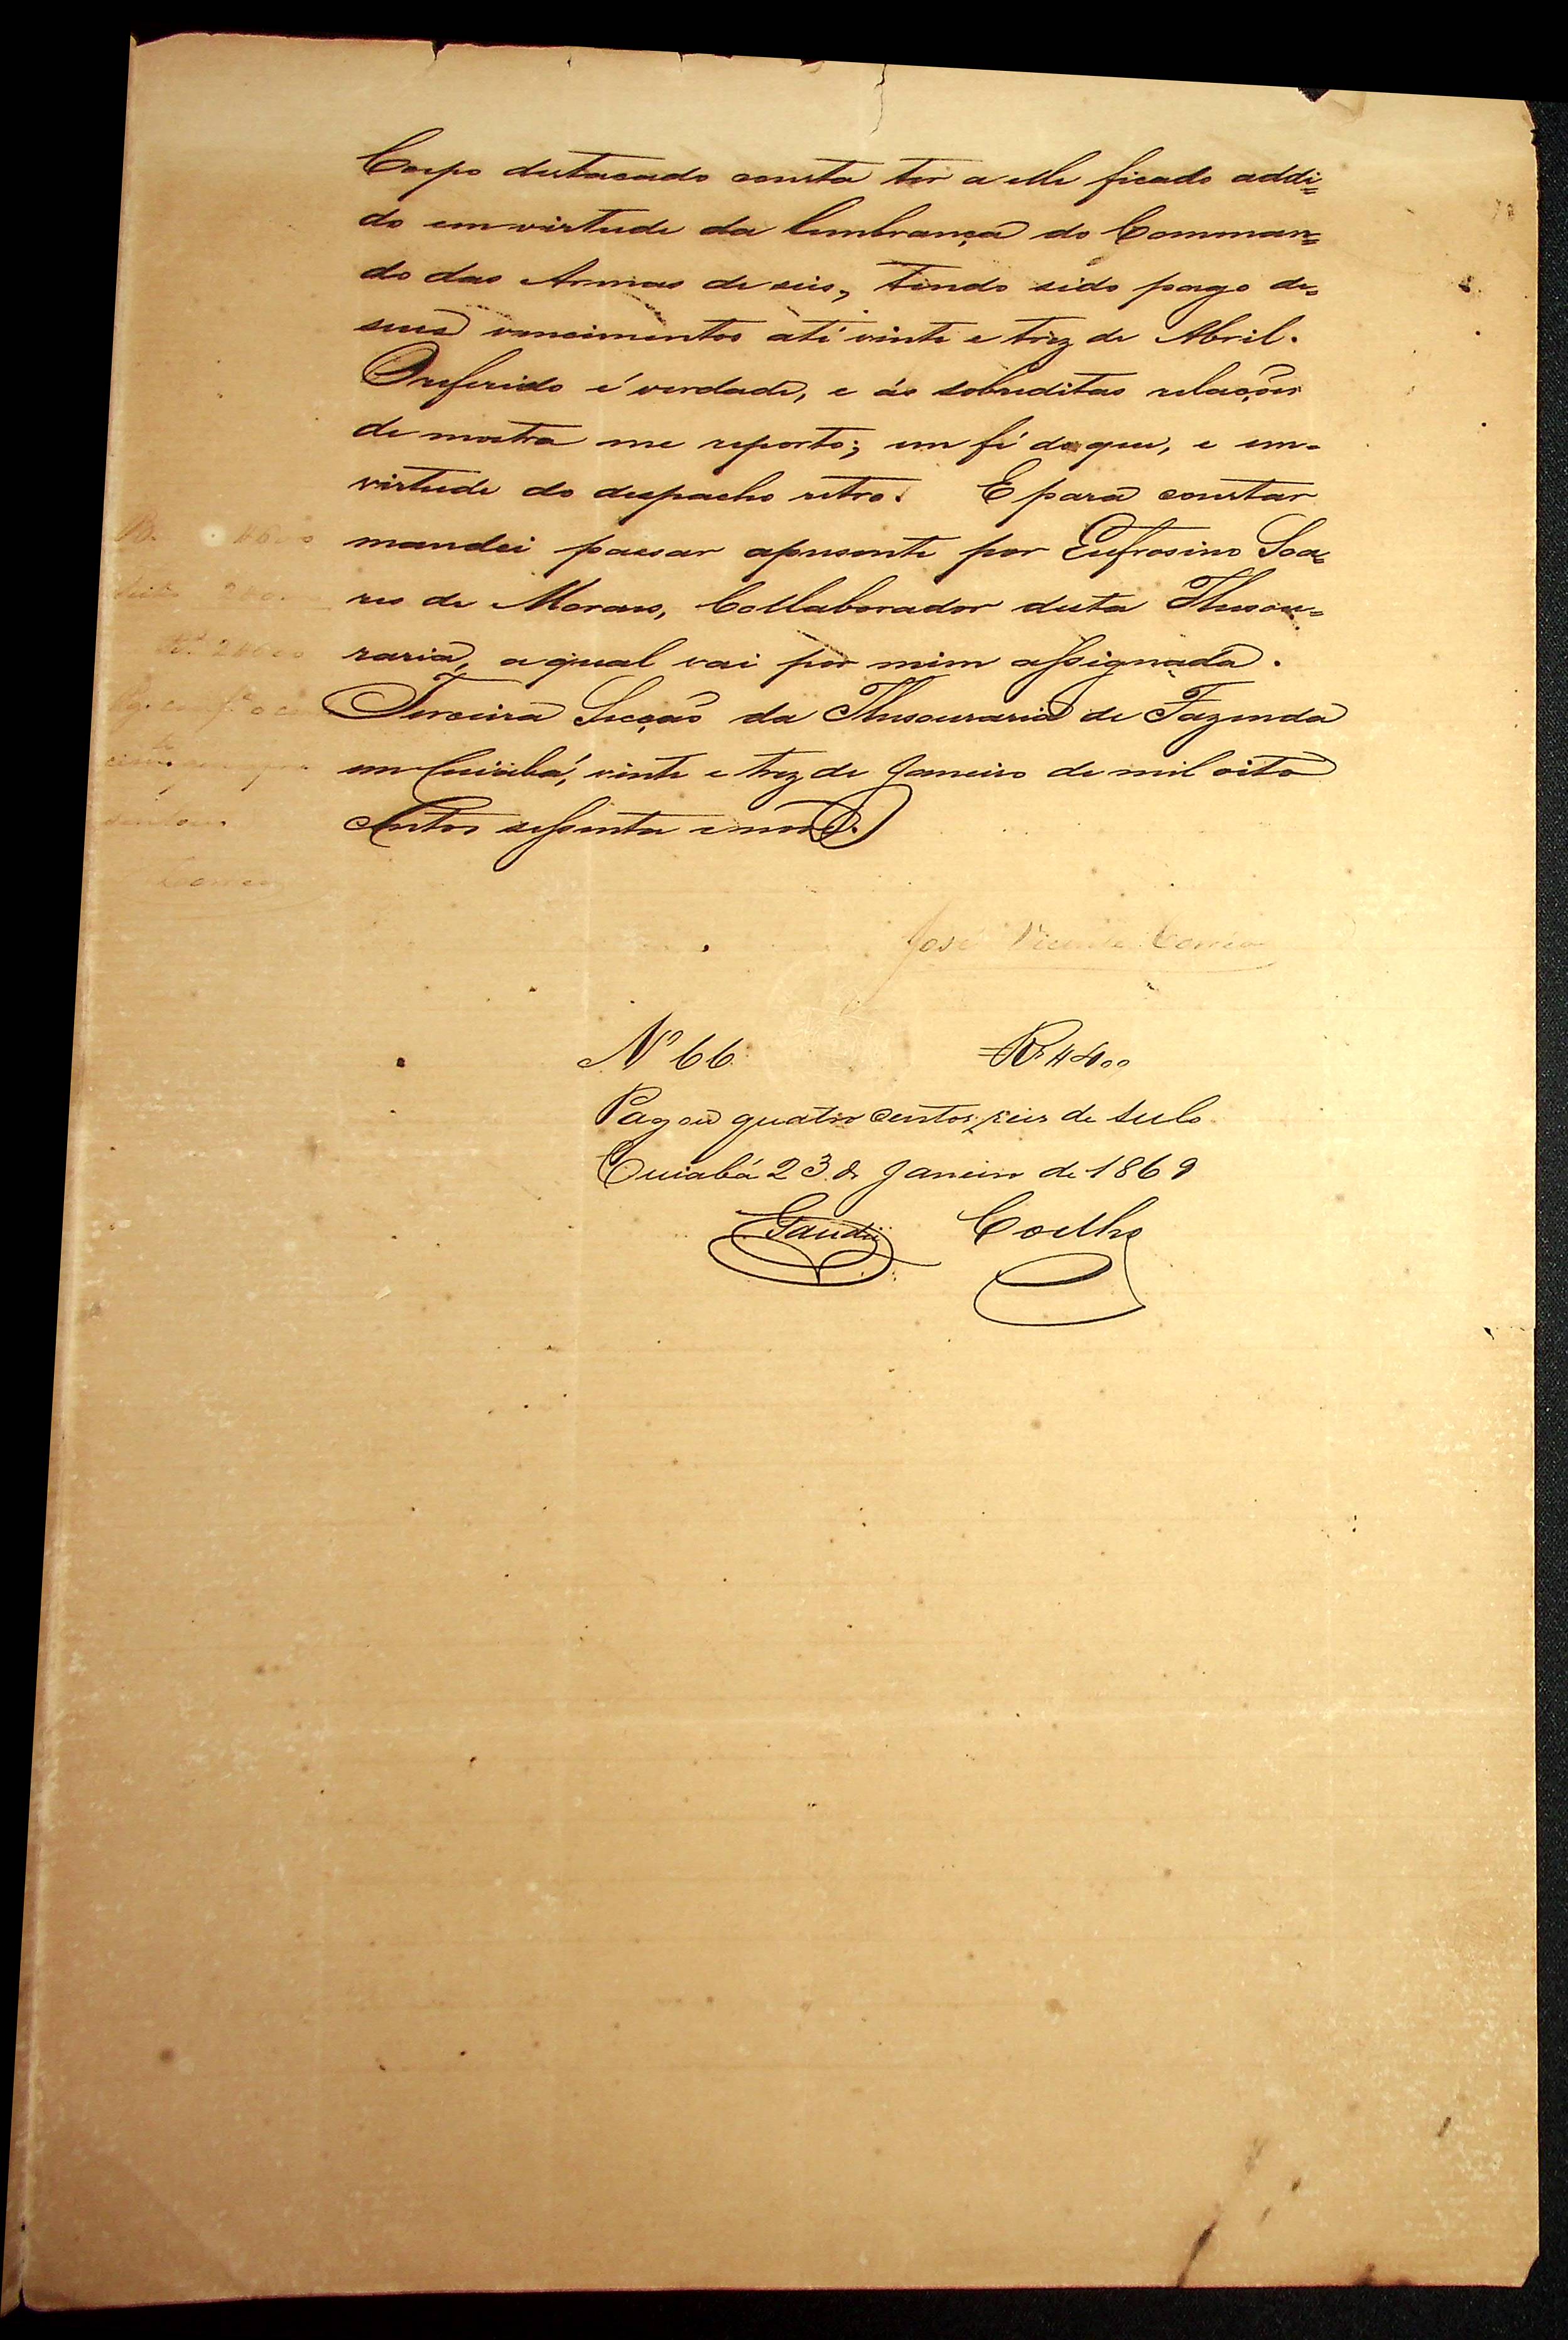 Corpo destacado consta ter a elle ficado addi=
do em virtude da lembrança do Comman=
do das Armas de seis, tendo sido pago de
seus vencimentos até vinte e trez de Abril.
O referido é verdade, e ás sobreditas relações
de mostra me reporto; em fé do que, e em
virtude do despacho retro. E para constar
mandei passar apresente por Eufrosino Soa=
res de Moraes, Collaborador desta Thesou=
raria, a qual vai por mim assignada.
Terceira Secção da Thesouraria de Fazenda
em Cuiabá, vinte e trez de Janeiro de mil oito
Centos sessenta e nove.
José Vicente Corrêa
Nº 66 Rs 400
Pagou quatro centos reis de sello
Cuiabá 23 de Janeiro de 1869
Gaudie Coelho